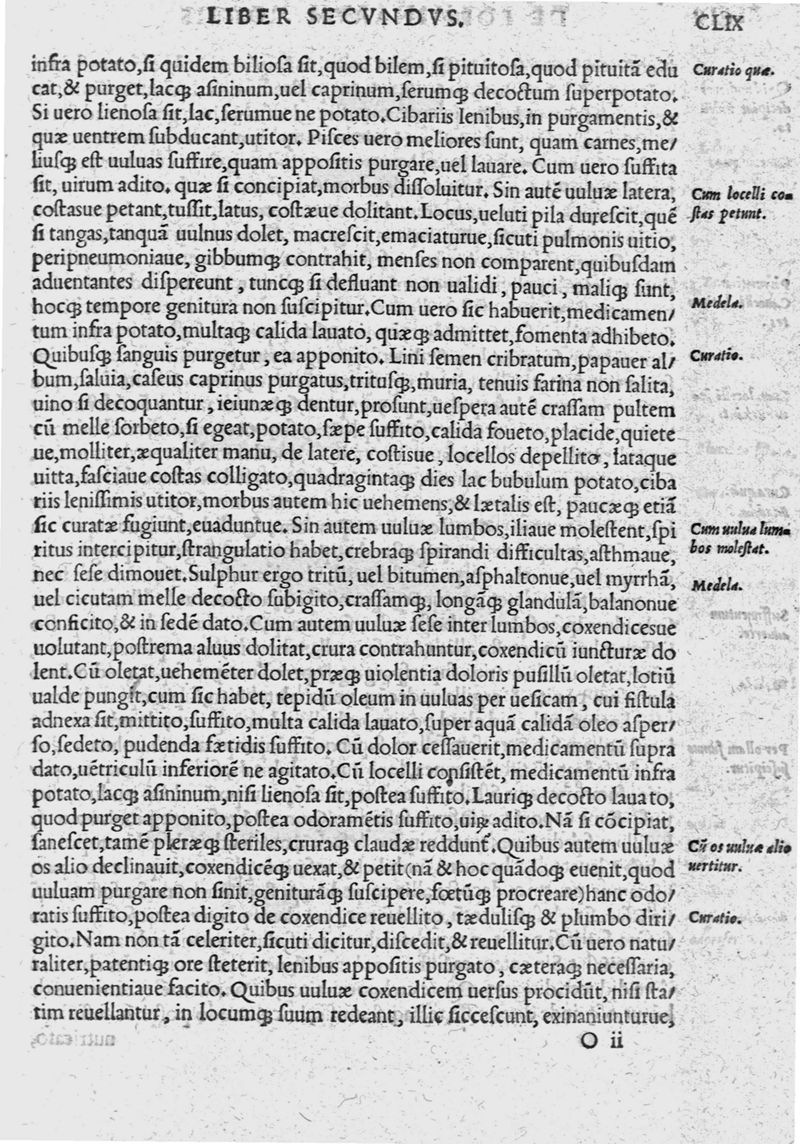 LIBER SECVNDVS.
CLIX
infra potato,ſi quidem bilioſa ſit,quod bilem,ſi pituitoſa,quod pituitā edu
Curatio quæ.
cat,& purget,lacq̃ aſininum,uel caprinum,ſerumq̃ decoctum ſuperpotato.
Si uero lienoſa ſit,lac,ſerumue ne potato.Cibariis lenibus,in purgamentis,&
quæ uentrem ſubducant,utitor. Piſces uero meliores ſunt, quam carnes,me/
liuſq̃ eſt uuluas ſuffire,quam appoſitis purgare,uel lauare. Cum uero ſuffita
ſit, uirum adito. quæ ſi concipiat,morbus diſſoluitur. Sin autē uuluæ latera,
Cum locelli co⸗
coſtasue petant,tuſſit,latus, coſtæue dolitant.Locus,ueluti pila dureſcit,quē
ſtas petunt.
ſi tangas,tanquā uulnus dolet, macreſcit,emaciaturue,ſicuti pulmonis uitio,
peripneumoniaue, gibbumq̃ contrahit, menſes non comparent,quibuſdam
aduentantes diſpereunt, tuncq̃ ſi defluant non ualidi, pauci, maliq̃ ſunt,
Medela.
hocq̃ tempore genitura non ſuſcipitur.Cum uero ſic habuerit,medicamen/
tum infra potato,multaq̃ calida lauato, quæq̃ admittet,fomenta adhibeto.
Quibuſq̃ ſanguis purgetur, ea apponito. Lini ſemen cribratum,papauer al/
Curatio.
bum,ſaluia,caſeus caprinus purgatus,trituſq̃,muria, tenuis farina non ſalita,
uino ſi decoquantur, ieiunæq̃ dentur,proſunt,ueſpera autē craſſam pultem
cū melle ſorbeto,ſi egeat,potato,ſæpe ſuffito,calida foueto,placide,quiete
ue,molliter,æqualiter manu, de latere, coſtisue, locellos depellito, lataque
uitta,faſciaue coſtas colligato,quadragintaq̃ dies lac bubulum potato,ciba
riis leniſſimis utitor,morbus autem hic uehemens,& lætalis eſt, paucæq̃ etiā
ſic curatæ fugiunt,euaduntue. Sin autem uuluæ lumbos,iliaue moleſtent,ſpi
Cum uulua lum⸗
ritus intercipitur,ſtrangulatio habet,crebraq̃ ſpirandi difficultas,aſthmaue,
bos moleſtat.
nec ſeſe dimouet.Sulphur ergo tritū, uel bitumen,aſphaltonue,uel myrrhā,
Medela.
uel cicutam melle decocto ſubigito,craſſamq̃, longāq̃ glandulā,balanonue
conficito,& in ſedē dato. Cum autem uuluæ ſeſe inter lumbos,coxendicesue
uolutant,poſtrema aluus dolitat,crura contrahuntur,coxendicū iuncturæ do
lent.Cū oletat,uehemēter dolet,præq̃ uiolentia doloris puſillū oletat,lotiū
ualde pungit,cum ſic habet, tepidū oleum in uuluas per ueſicam, cui fiſtula
adnexa ſit,mittito,ſuffito,multa calida lauato,ſuper aquā calidā oleo aſper/
ſo,ſedeto, pudenda fætidis ſuffito. Cū dolor ceſſauerit,medicamentū ſupra
dato,uētriculū inferiorē ne agitato.Cū locelli conſiſtēt, medicamentū infra
potato,lacq̃ aſininum,niſi lienoſa ſit,poſtea ſuffito. Lauriq̃ decocto lauato,
quod purget apponito,poſtea odoramētis ſuffito,uirū adito. Nā ſi cōcipiat,
ſaneſcet,tamē pleræq̃ ſteriles,cruraq̃ claudæ reddunt̃. Quibus autem uuluæ
Cū os uuluæ alio
os alio declinauit,coxendicēq̃ uexat,& petit(nā & hoc quādoq̃ euenit,quod
uertitur.
uuluam purgare non ſinit,geniturāq̃ ſuſcipere,fœtūq̃ procreare)hanc odo/
ratis ſuffito,poſtea digito de coxendice reuellito, tæduliſq̃ & plumbo diri/
Curatio.
gito. Nam non tā celeriter,ſicuti dicitur,diſcedit,& reuellitur. Cū uero natu/
raliter,patentiq̃ ore ſteterit, lenibus appoſitis purgato, cæteraq̃ neceſſaria,
conuenientiaue facito. Quibus uuluæ coxendicem uerſus procidūt, niſi ſta/
tim reuellantur, in locumq̃ ſuum redeant, illic ſicceſcunt, exinaniunturue,
O ii